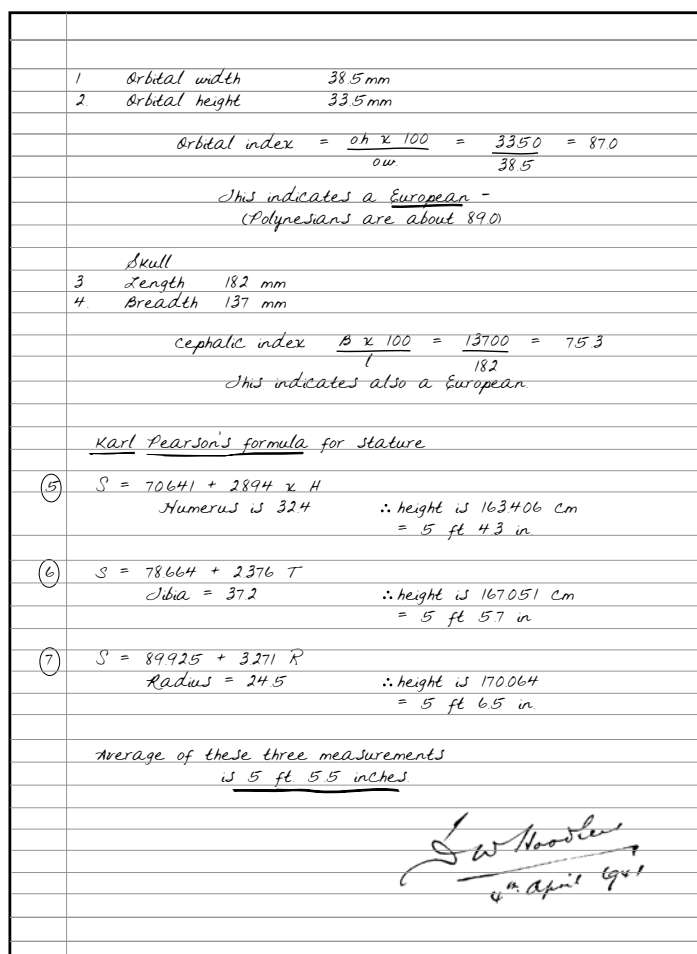 1 Orbital width 38.5 mm
2. Orbital height 33.5 mm
Orbital index = oh x 100 / ow. = 3350 / 38.5 = 87.0
This indicates a European -
(Polynesians are about 89.0)
Skull
3 Length 182 mm
4. Breadth 137 mm
Cephalic index B x 100 / l = 13700 / 182 = 75.3
This indicates also a European.
Karl Pearson's formula for stature
5 S = 70.641 + 2.894 x H
Humerus is 32.4 ∴ height is 163.406 cm
= 5 ft 4.3 in.
6 S = 78.664 + 2.376 T
Tibia = 37.2 ∴ height is 167.051 cm
= 5 ft 5.7 in
7 S = 89.925 + 3.271 R
Radius = 24.5 ∴ height is 170.064
= 5 ft 6.5 in.
Average of these three measurements
is 5 ft. 5.5 inches.
D W Hoodless
4th April 1941